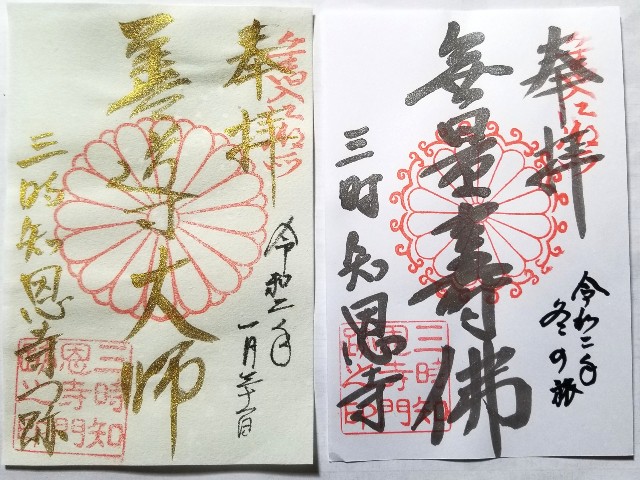 奉拝
善導大師
三時知恩寺門跡
令和二年
一月
三時知
恩寺門
跡之印
奉拝
無量壽佛
三時知恩寺
令和二年
冬の旅
三時知
恩寺門
跡之印